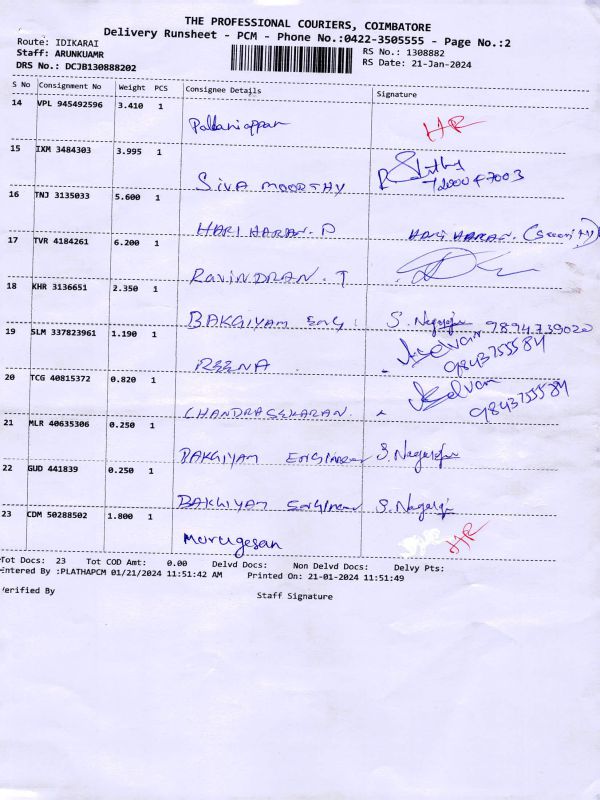 THE PROFESSIONAL COURIERS, COIMBATORE
Delivery Runsheet - PCM - Phone No.:0422-3505555 - Page No.:2
Route: IDIKARAI
Staff: ARUNKUAMR
RS No.: 1308882
DRS No.: DCJB130888202
RS Date: 21-Jan-2024
S No Consignment No Weight PCS Consignee Details Signature
14 VPL 945492596 3.410 1
Pallaniappan HR
15 IXM 3484303 3.995 1
SIVA MOORTHY
16 TNJ 3135033 5.600 1
HARI HARAN. P HARI HARAN. (Security)
17 TVR 4184261 6.200 1
RAVINDRAN. T
18 KHR 3136651 2.350 1
BAKGIYAM ENG: S. Nagaraja 9894739020
19 SLM 337823961 1.190 1
REENA Selvan 9843755584
20 TCG 40815372 0.820 1
CHANDRASEKARAN. Selvan 9843755584
21 MLR 40635306 0.250 1
BAKGIYAM S. Nagaraja
22 GUD 441839 0.250 1
BAKGIYAM S. Nagaraja
23 CDM 50288502 1.800 1
Murugesan HR
Tot Docs: 23 Tot COD Amt: 0.00 Delvd Docs: Non Delvd Docs: Delvy Pts:
Entered By :PLATHAPCM 01/21/2024 11:51:42 AM Printed On: 21-01-2024 11:51:49
Verified By
Staff Signature